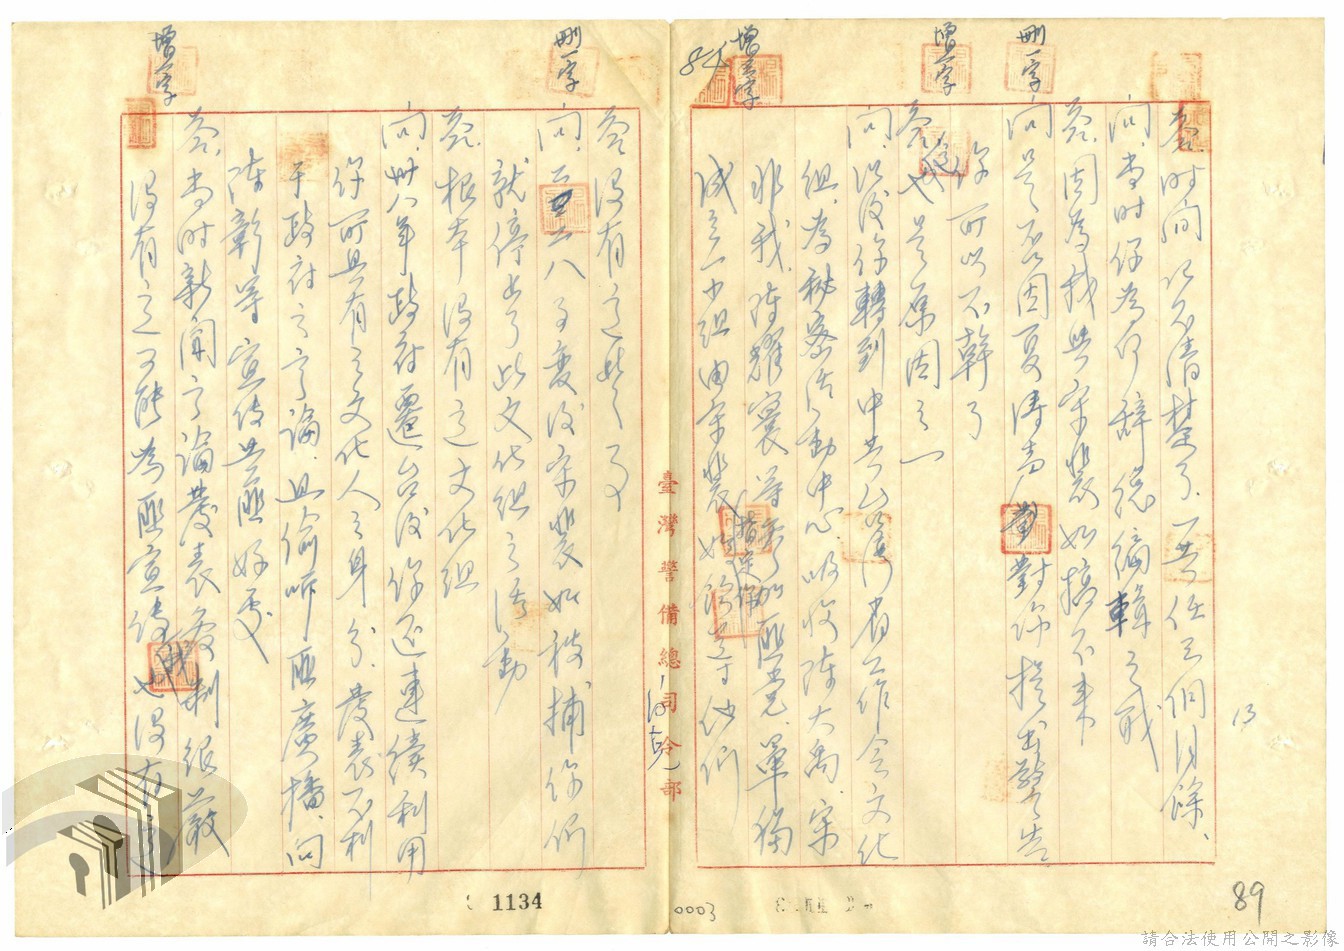 答 時間記不清楚了、一共任三個月餘、
問、當時你為何辭總編輯之職
答、因為我與宋斐如搞不來
問 是否因夏濤声曾對你提出警告
你可以不幹了
答 這也是原因之一
問、以後你轉到中共台灣省工作會文化
組、為秘密活動中心、吸收陳大禹、宋
非我、陳耀寰等參加匪党、單獨
成立一小組由宋斐如指定你領導他們
答 沒有這些事
問、二二八事變後宋斐如被捕你們
就停止了此文化組之活動
答、根本沒有這文化組
問、卅八年政府遷台後你還連續利用
你所具有之文化人之身分、發表不利
于政府之言論、且偷听匪廣播、向
陳彰等宣傳共匪好處
答、當時新聞言論發表管制很嚴
沒有這可能為匪宣傳 我也沒有這
刪一字
增一字
增壹字
刪一字
增一字
臺灣警備總司令部
1134
0003
89
13
請合法使用公開之影像